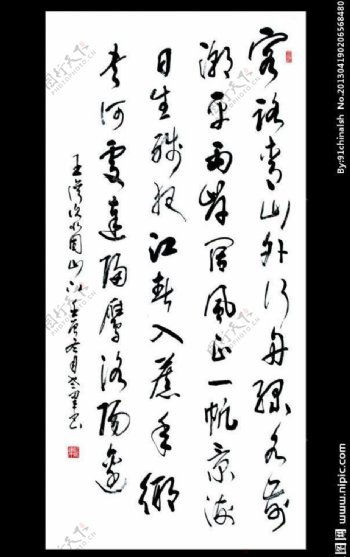 客路青山外行舟绿水前
潮平両岸阔风正一帆悬海
日生残夜江春入旧年乡
书何处达归雁洛阳边
王湾次北固山下壬辰冬月
By:91chinalsh No.20130419020656848​0
昵图网 www.nipic.com
图行天下
PHOTOPHOTO.CN